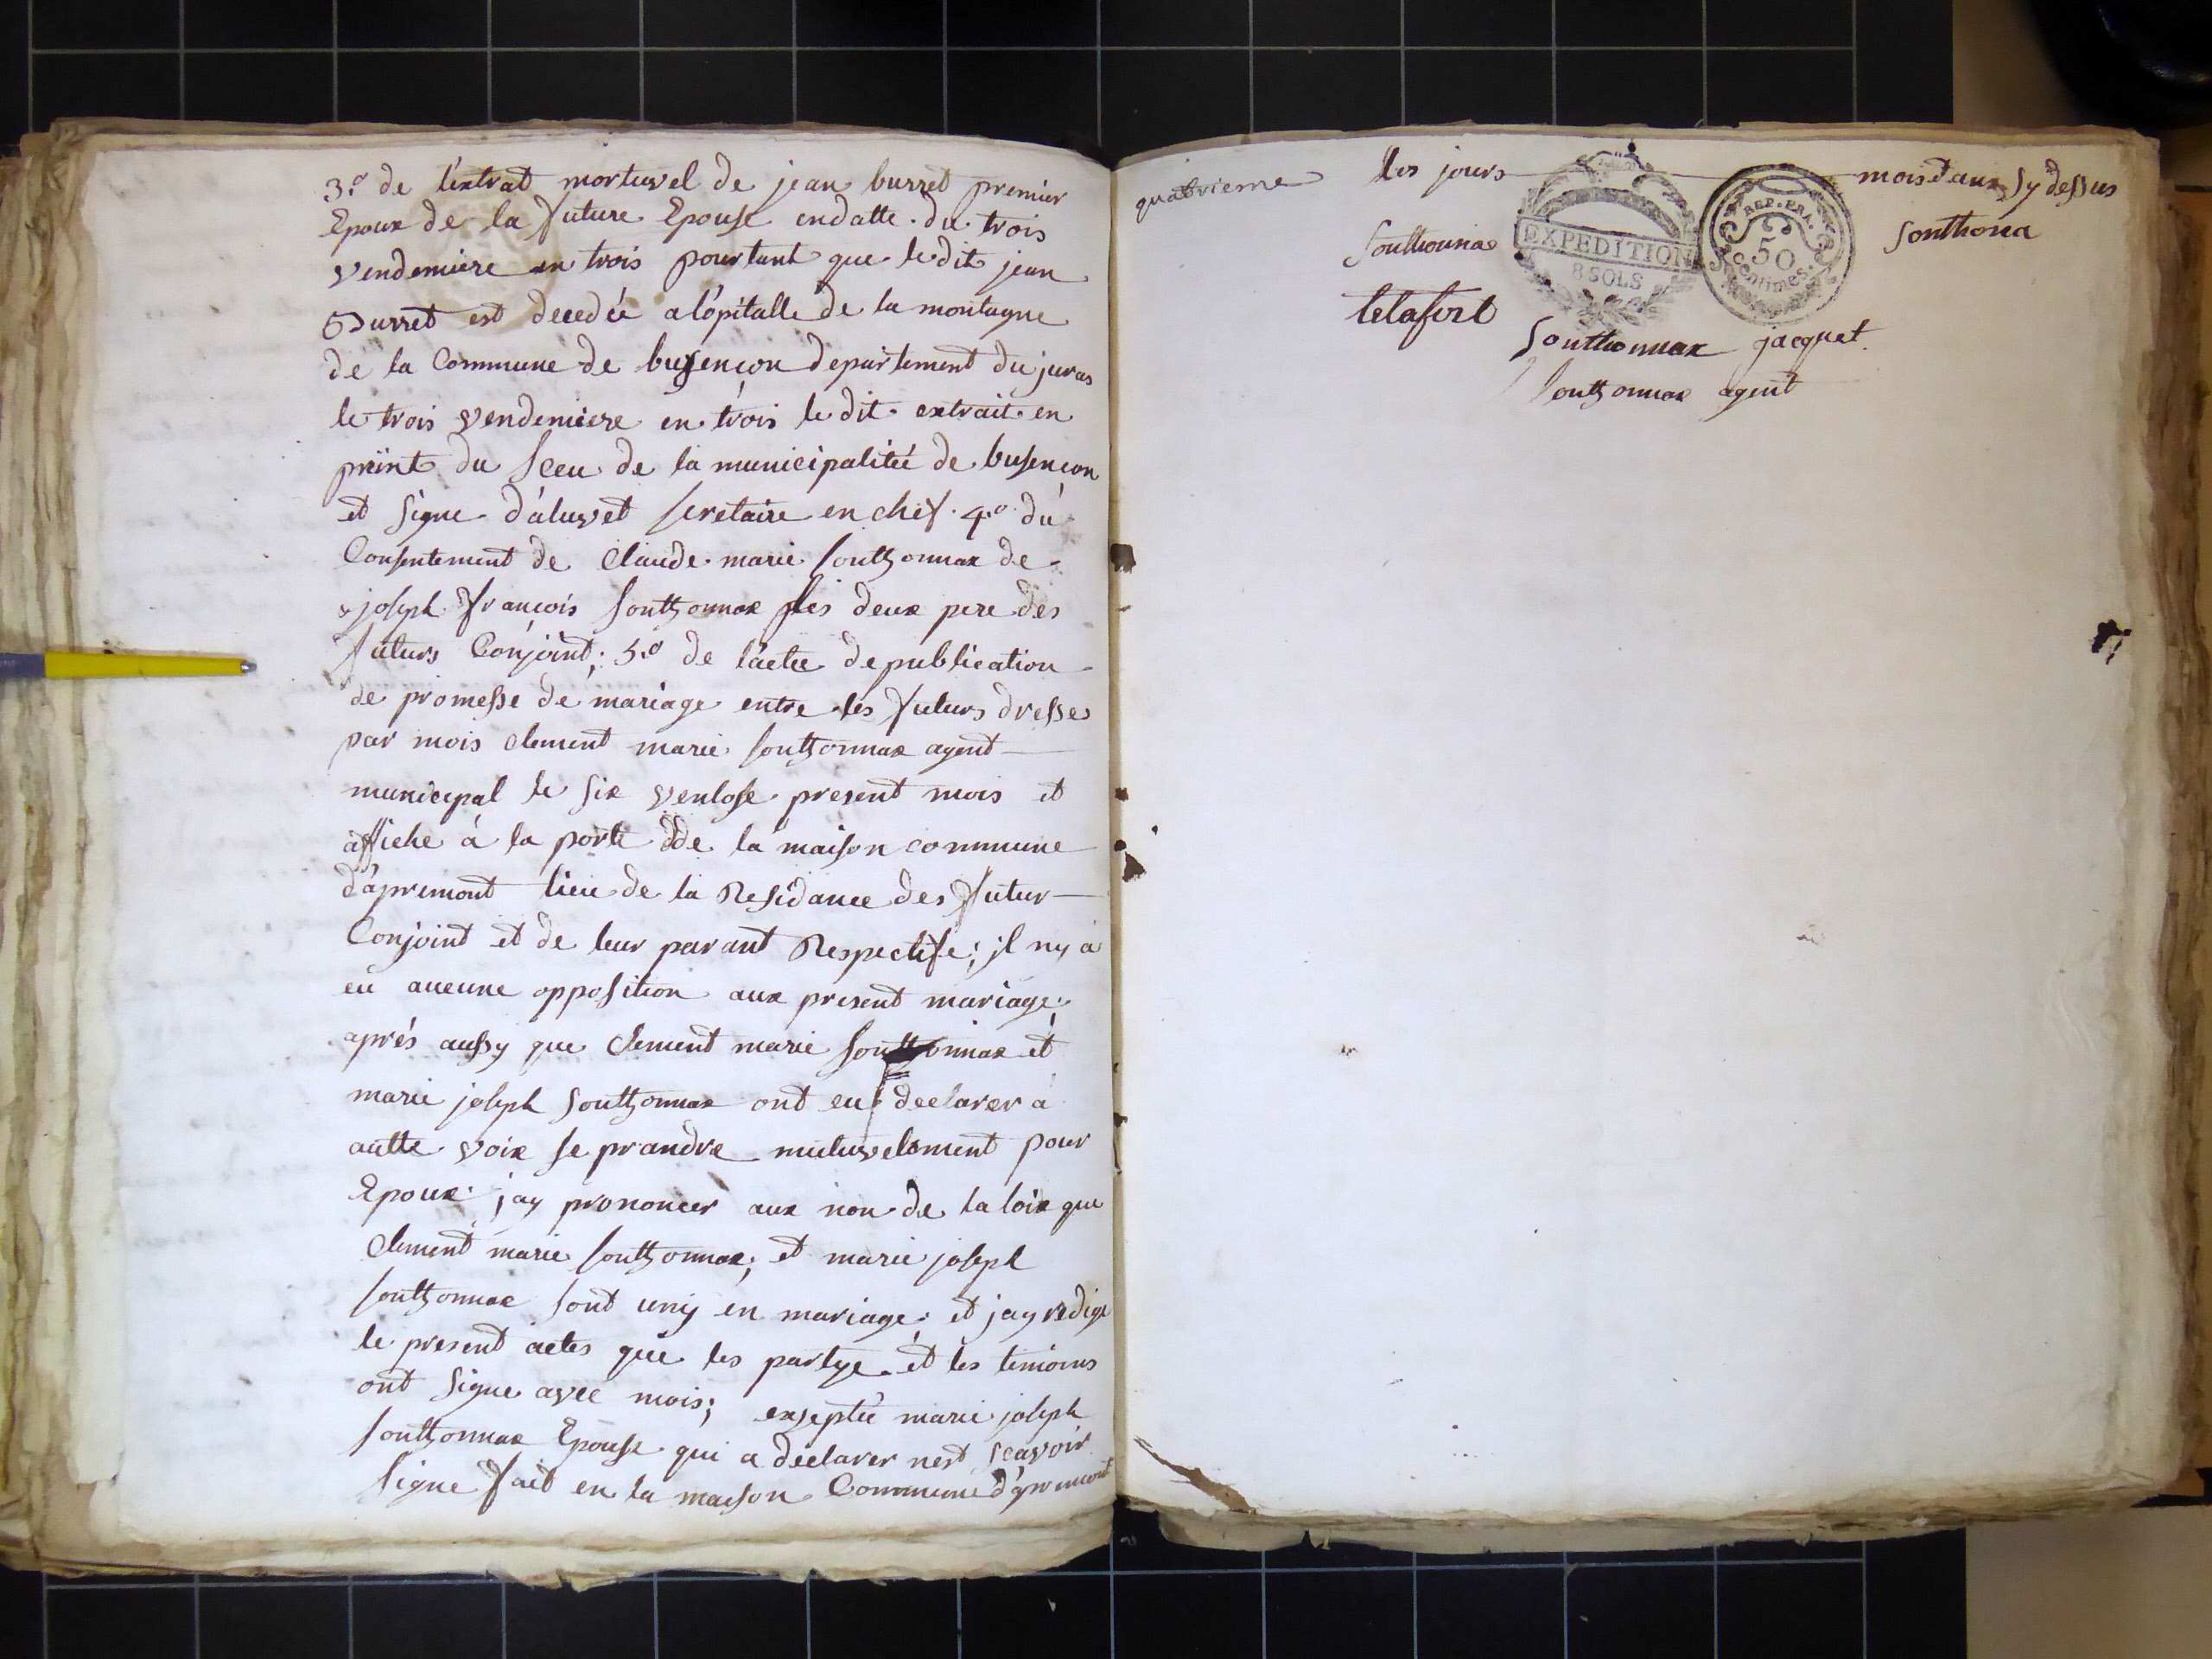 3.º de l'extrat mortuvel de jean burret premier
Epoux de la future Epouse endatte du trois
vendemiere en trois pourtant que le dit jean
Burret est decedée a lópitalle de la montagne
de la Commune de busençon departement du juras
le trois vendemiere en trois le dit extrait en
preint du sceu de la municipalitée de busençon
et signe d'aluvet scretaire en chef. 4.º du
Consentement de Claude marie southonnax de
joseph françois southonnax les deux pere des
futurs Conjoint; 5.º de l'actee de publication
de promesse de mariage entre les futurs dresse
par mois clement marie southonnax agent
municipal le six ventose present mois et
affiche á la porte de la maison commune
d'apremont lieu de la Residance des futur
Conjoint et de leur parant Respectife; il ny a
eu aucune opposition aux present mariage;
aprés aussy que Clement marie southonnax et
marie joseph southonnax ont eu declarer a
autte voix se prandre mutuvelement pour
Epoux jay prononcer aux non de la loix que
Clement marie southonnax; et marie joseph
southonnax sont uny en mariage; et jay redige
le present actes que les partye et les temoins
ont signe avec mois; exseptée marie joseph
southonnax Epouse qui a declarer nest scavoir
signe fait en la maison Commune d'apremont
quatrieme
les jours mois et aux sy dessus
EXPEDITION
8 SOLS
REP. FRA.
50
centimes.
Southonna
Sonthona
letafort
Southonnax jacquet
southonnax agent